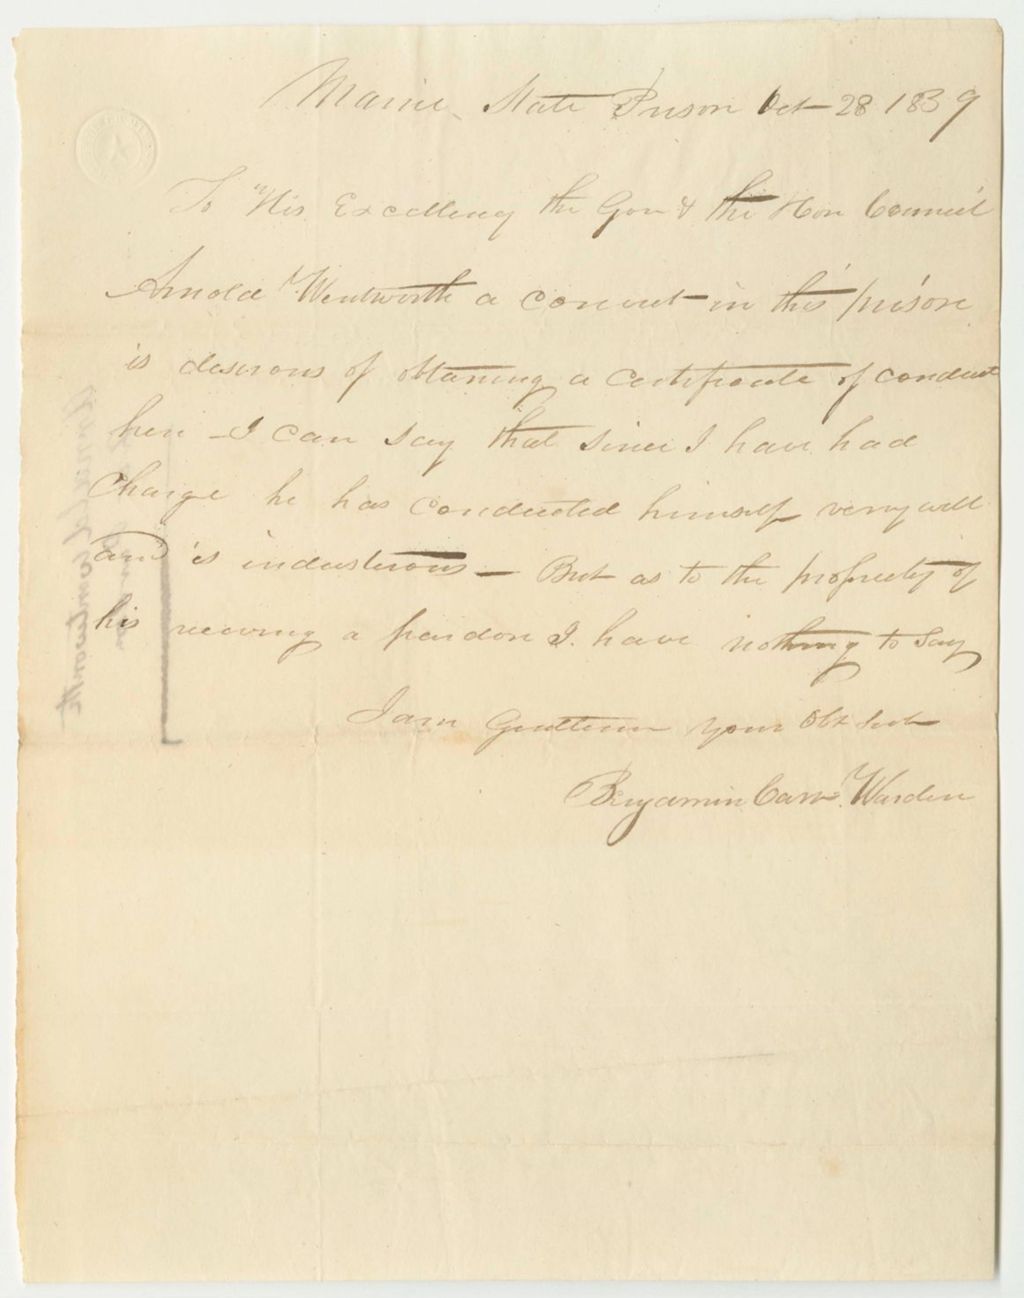 Maine State Prison Oct 28 1839
To His Excellency the Gov & the Hon Council
Arnold Wentworth a convict in this prison
is desirous of obtaining a certificate of conduct
here - I can say that since I have had
Charge he has conducted himself very well
and is industrous - But as to the propriety of
his receiving a pardon I have nothing to say
I am Gentlemen your Obt Svt
Benjamin Carr Warden
Arnold Wentworth